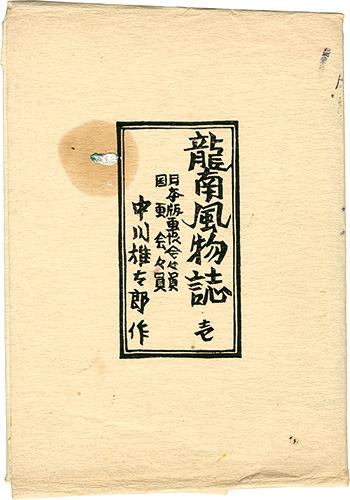 龍南風物誌 壱
日本版画協会々員
国画会々員
中川雄太郎 作